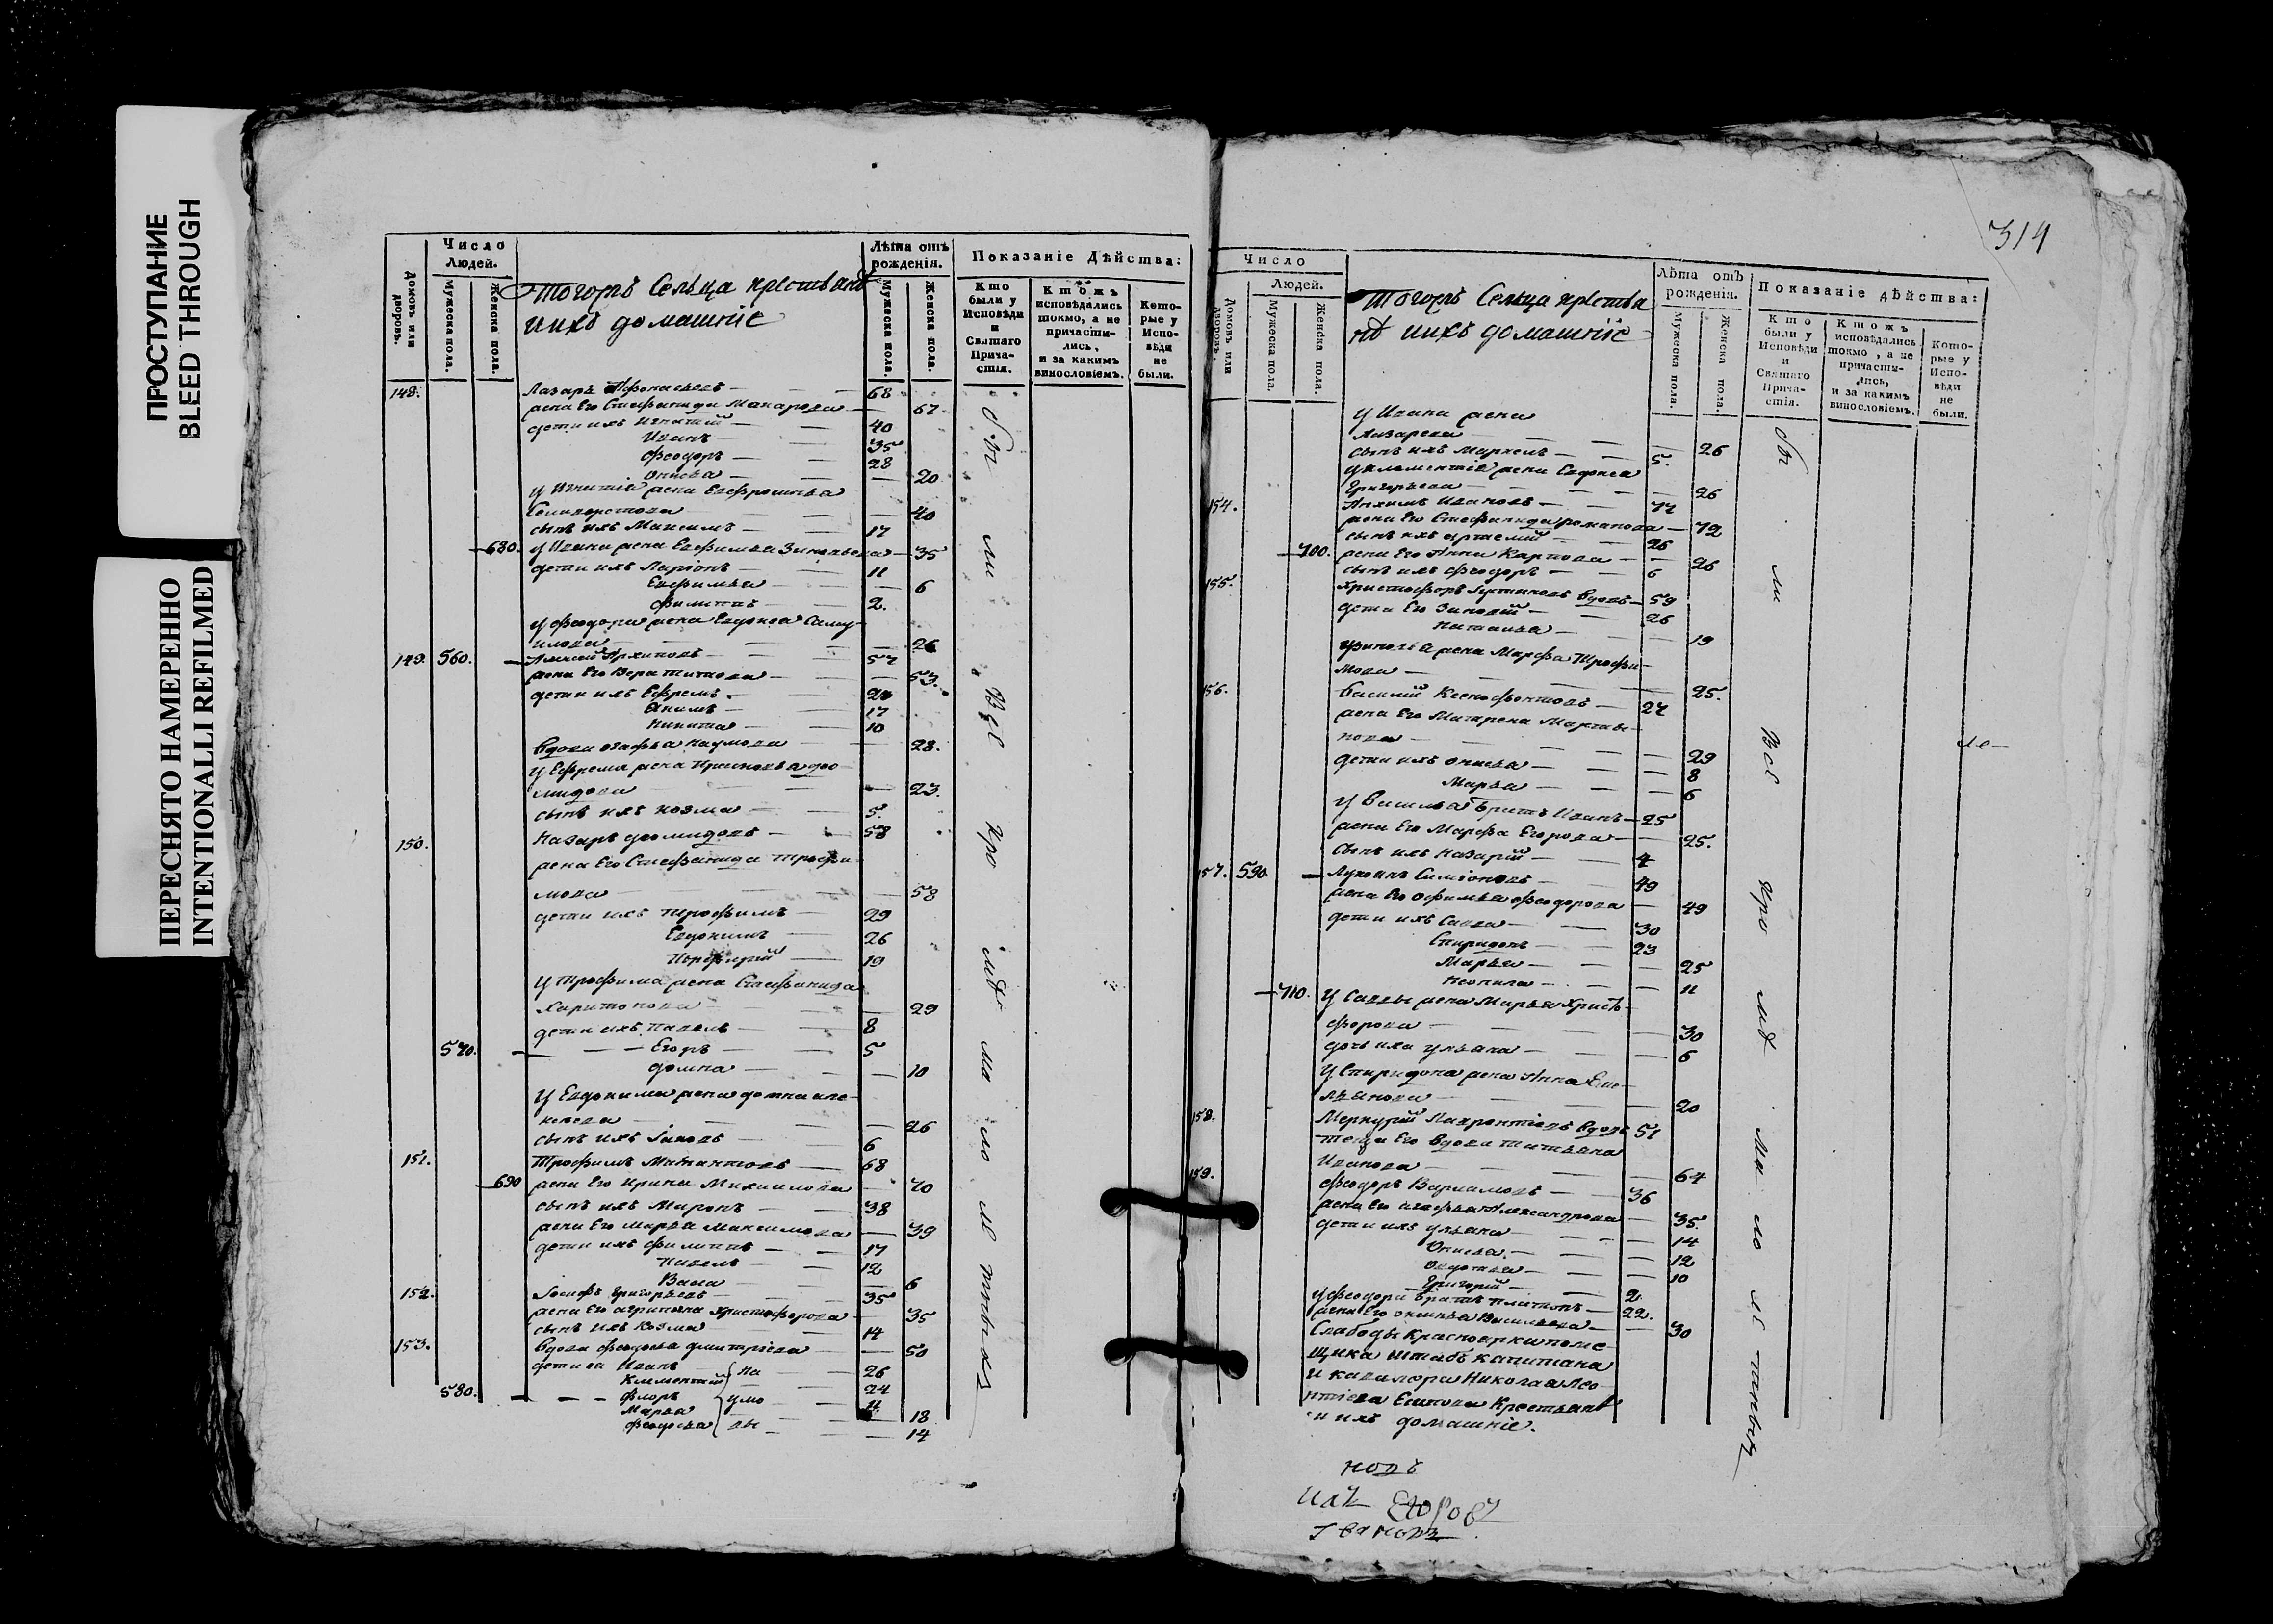 ПРОСТУПАНИЕ
BLEED THROUGH
ПЕРЕСНЯТО НАМЕРЕННО
INTENTIONALLI REFILMED
Число Людей.
Лѣта отъ рожденія.
Показаніе Дѣйства:
Домовъ или дворовъ.
Мужеска пола.
Женска пола.
Тогожъ Сельца крестьянѣ
ииxъ домашніе
Мужеска пола.
Женска пола.
Кто были у Исповѣди и Святаго Причастія.
Ктожъ исповѣдались токмо, а не причастились, и за какимъ винословіемъ.
Которые у Исповѣди не были.
148. Лазарь 68
жена Его Стефанида Макарова 67
дети ихъ Игнатий 40
Иванъ 35
Феодоръ 28
Онисья 20
у Игнатия жена Евфросинья
Селиверстова 40
сынъ ихъ Максимъ 17
680. у Ивана жена Евфимья 35
дети ихъ Ларіонъ 11
Евфимья 6
Филиппъ 2.
у Феодора жена Евдокея Саму-
илова 26
149. 560. Архиповъ 57
жена Его Вера Титова 53.
дети ихъ Ефремъ 24
Екимъ 17
Никита 10
вдова Агафья Наумова 28.
у Ефрема жена дио-
мидова 23.
сынъ ихъ Козма 5.
150. Назаръ Диомидовъ 58
жена Его Стефанида Трофи-
мова 58
дети ихъ Трофимъ 29
Евдокимъ 26
Порфирий 19
у Трофима жена Стефанида
Харитонова 29
дети ихъ Павелъ 8
570. Егоръ 5
Домна 10
у Евдокима жена Домна Але-
ксеева 26
сынъ ихъ Іаковъ 6
151. Трофимъ 68
690 жена Его Ирина Михаилова 70
сынъ ихъ Миронъ 38
жена Его Марья Максимова 39
дети ихъ Филиппъ 17
Павелъ 12
Васса 6
152. Іосифъ Григорьевъ 35
жена Его Агрипина Христофорова 35
сынъ ихъ Козма 14
153. вдова Феодосья Дмитріева 50
дети ея Иванъ 26
Климентий 24
580. Флоръ 11
Марья 18
Феодосья 14
На
умо
вы
бы ли Всѣ кро мѣ ма ло лѣ тныхъ
314
Число Людей.
Лѣта отъ рожденія.
Показаніе дѣйства:
Домовъ или дворовъ.
Мужеска пола.
Женска пола.
Тогожъ Сельца крестья
нѣ иихъ домашніе
Мужеска пола.
Женска пола.
Кто были у Исповѣди и Святаго Причастія.
Ктожъ исповѣдались токмо, а не причастились, и за какимъ винословіемъ.
Которые у Исповѣди не были.
у Ивана жена
Лазарева 26
сынъ ихъ Маркелъ 5.
у Климентія жена Евдокея
Григорьева 26
154. Ивановъ 77
жена Его Стефанида Романова 72
сынъ ихъ Артемий 26
700. жена Его Анна Карпова 26
сынъ ихъ Феодоръ 6
155. Христофоръ вдовъ 59
дети Его Зиновий 26
Наталья 19
жена Марфа Трофи-
мова 25.
156. Василий Ксенофонтовъ 27
жена Его Матрена Марты-
нова 29
дети ихъ Онисья 8
Марья 6
у Василья братъ Иванъ 25
жена Его Марфа Егорова 25.
сынъ ихъ Назарий 4
157. 590. Лукоянъ Симіоновъ 49
жена Его Офимья Феодорова 49
дети ихъ Савва 30
Спиридонъ 23
Марья 25
Неонила 11
710. у Саввы жена Марья Христо-
форова 30
дочь ихъ Ульяна 6
у Спиридона жена Анна Еме-
льянова 20
158. Меркурий Лаврентіевъ вдовъ 51
теща Его вдова Татьяна
Иванова 64
159. Феодоръ Варламовъ 36
жена Его Агафья Александрова 35.
дети ихъ Ульяна 14
Онисья 12
Авдотья 10
Григорий 2
у Феодора братъ Платонъ 22.
жена Его Аксинья Васильева 30
Слабоды Красноярки поме
щика штабъ капитана
и кавалера Николая Лео
нтіева Есипова Крестьянѣ
и ихъ домашніе.
бы ли Всѣ кро мѣ ма ло лѣ тныхъ
Егоровъ
Ивановъ